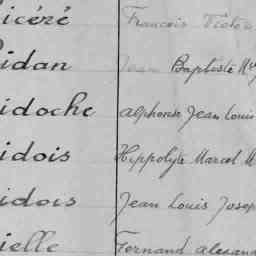 icéré François Victor
idan Jean Baptiste
idoche alphonse Jean Louis
idois Hippolyte Marcel M
idois Jean Louis Josep
ielle Fernand alexand